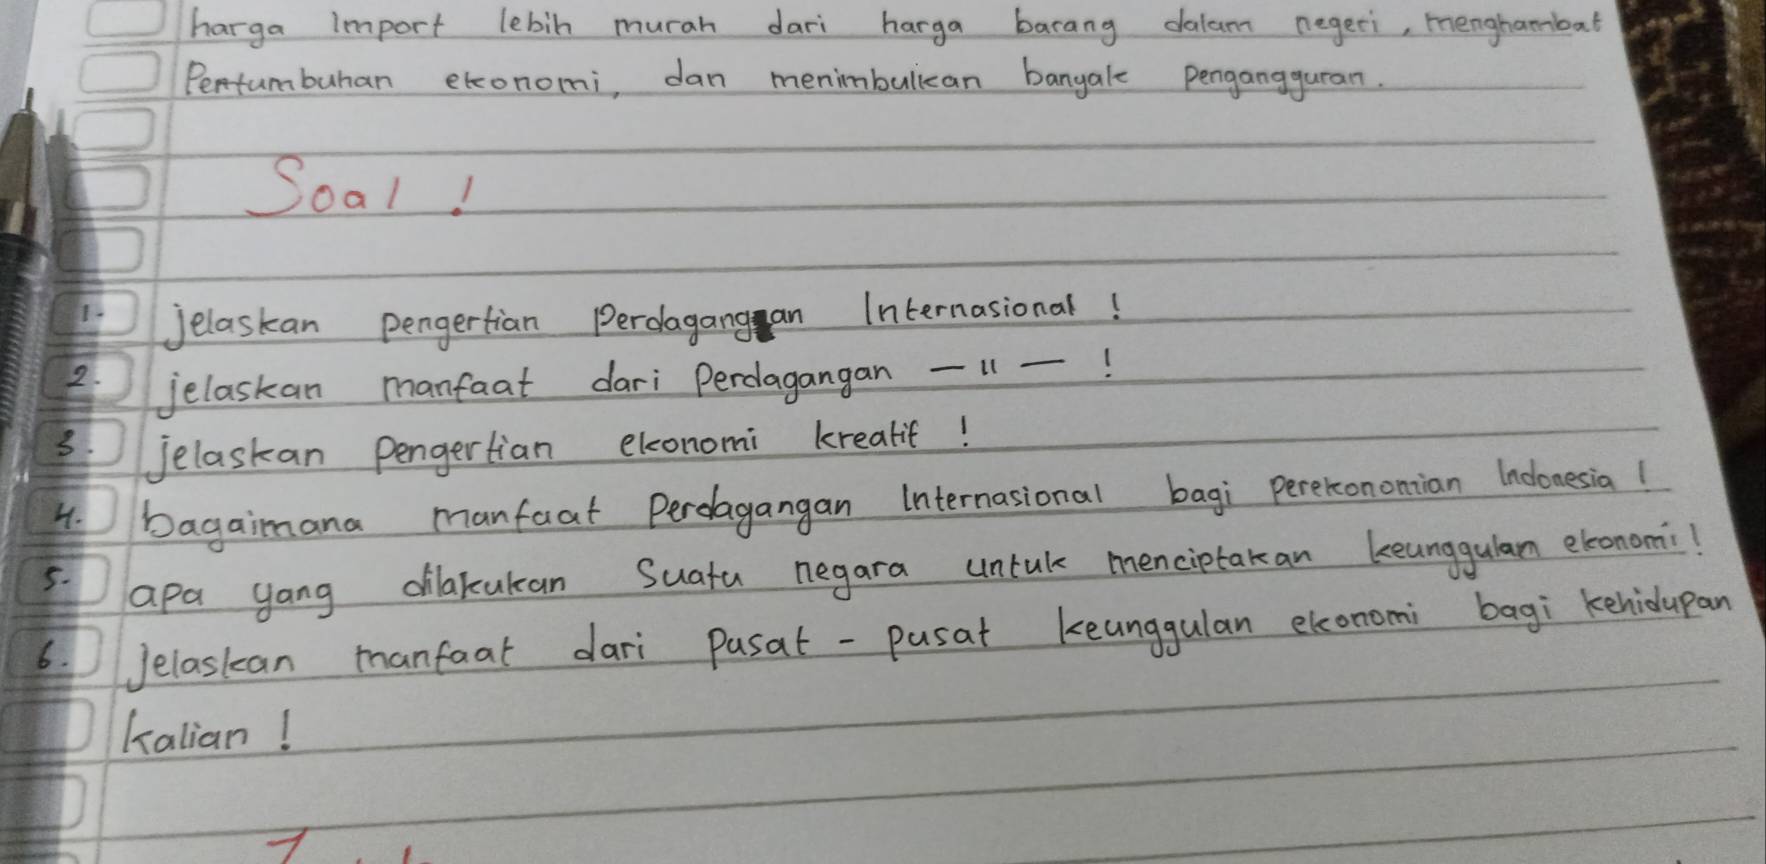 harga import lebih murah dari harga barang dalam negeri, menghambat
Pertumbuhan ekonomi, dan menimbulkan banyak pengangguran.
Soal !
1. jelaskan pengertian Perdagangan Internasional !
2. jelaskan manfaat dari Perdagangan — " — !
3. jelaskan pengertian ekonomi kreatif !
4. bagaimana manfaat Perdagangan Internasional bagi perekonomian Indonesia !
5. apa yang dilakukan Suatu negara untuk menciptakan keunggulan ekonomi !
6. Jelaskan manfaat dari Pusat - pusat keunggulan ekonomi bagi kehidupan
kalian !